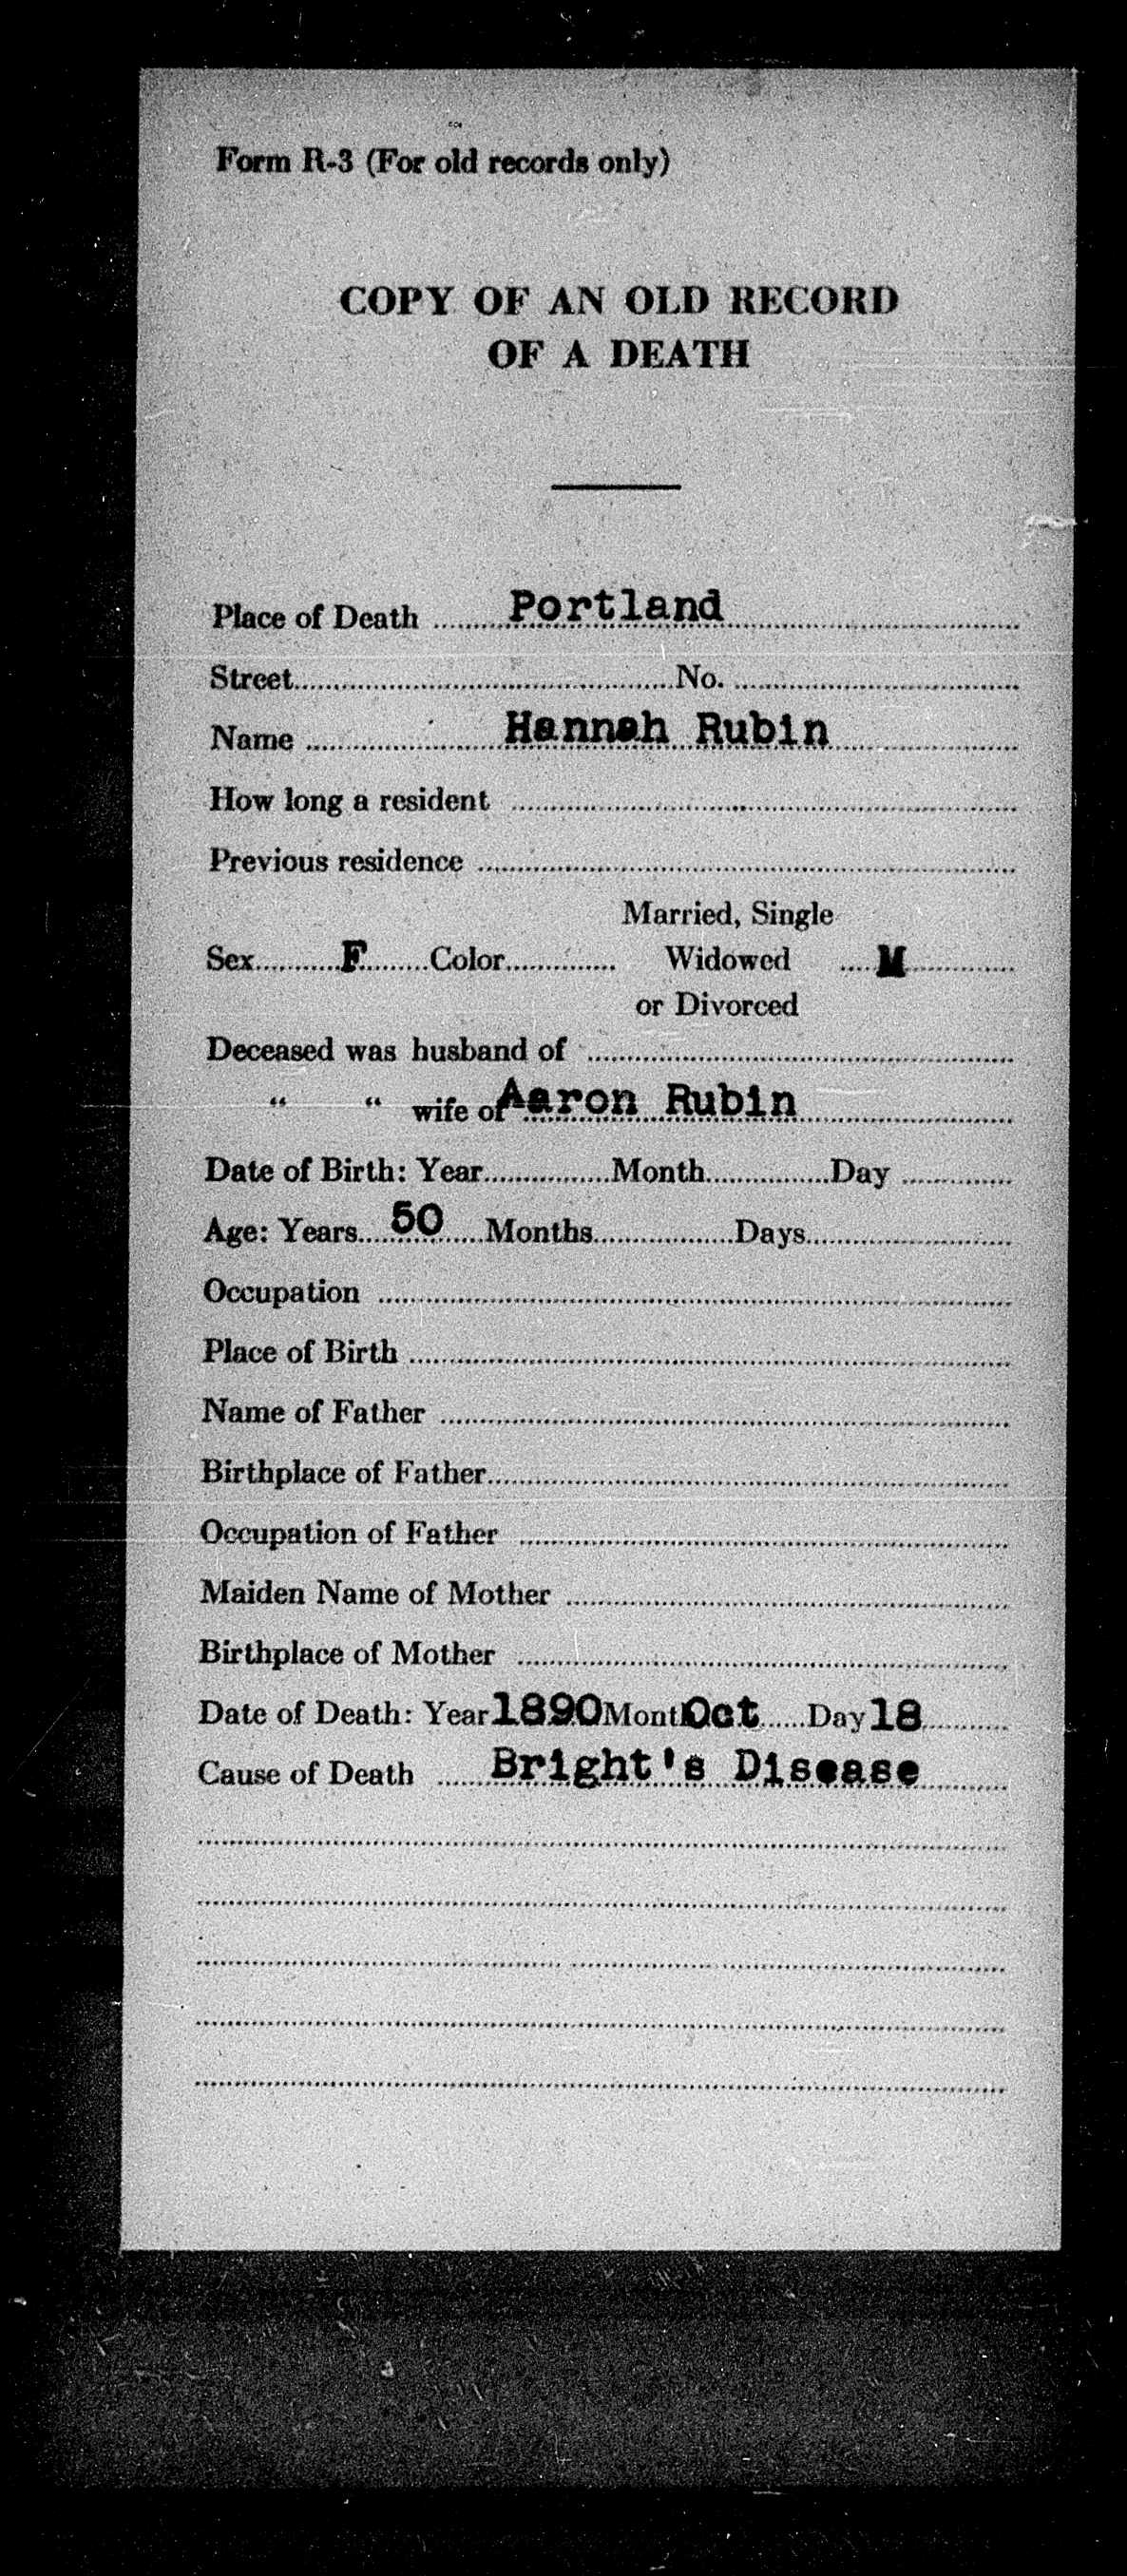 Form R-3 (For old records only)
COPY OF AN OLD RECORD
OF A DEATH
Place of Death Portland
Street No.
Name Hannah Rubin
How long a resident
Previous residence
Married, Single
Sex F Color Widowed M
or Divorced
Deceased was husband of
“ “ wife of Aaron Rubin
Date of Birth: Year Month Day
Age: Years 50 Months Days
Occupation
Place of Birth
Name of Father
Birthplace of Father
Occupation of Father
Maiden Name of Mother
Birthplace of Mother
Date of Death: Year 1890 Month Oct Day 18
Cause of Death Bright's Disease